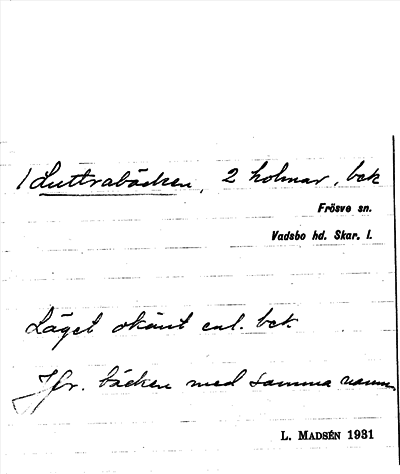 / Luttrabäcken, 2 holmar, bek
Frösve sn.
Vadsbo hd. Skar. l.
Läget okänt enl. bek.
Jfr. bäcken med samma namn.
L. MADSÉN 1931